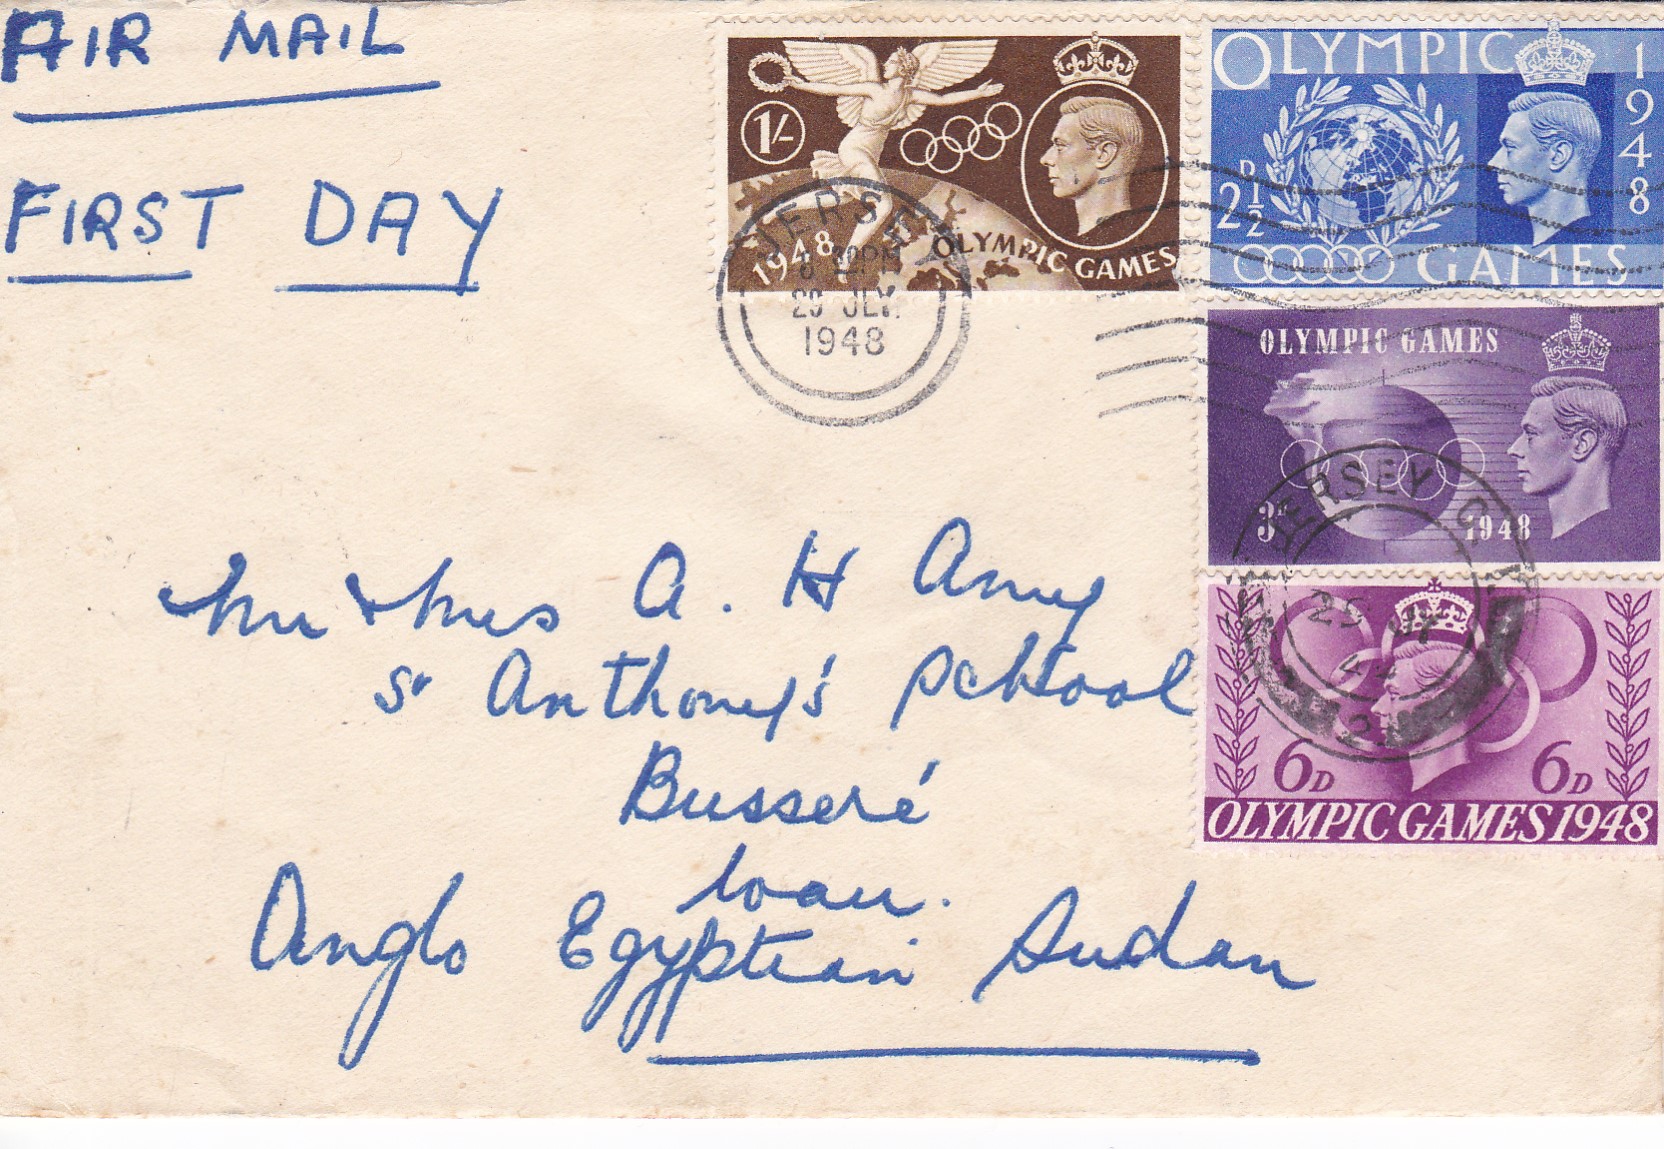 AIR MAIL
FIRST DAY
1/-
1948
OLYMPIC GAMES
OLYMPIC
GAMES
1948
2½D
JERSEY
29 JLY.
1948
OLYMPIC GAMES
3D
1948
JERSEY C.I.
29 JY
48
2
6D
6D
OLYMPIC GAMES 1948
Mr & Mrs A. H Amy
St Anthony's School
Busseré
Wau.
Anglo Egyptian Sudan